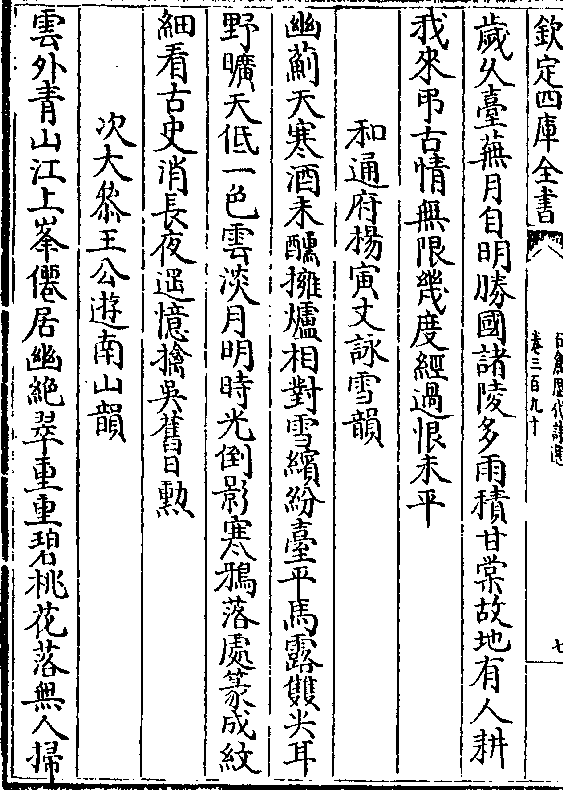 欽定四庫全書
石倉歷代詩選
卷三百九十
七
歲久臺蕪月自明勝國諸陵多雨積甘棠故地有人耕
我來弔古情無限幾度經過恨未平
和通府楊寅丈詠雪韻
幽薊天寒酒未醺擁爐相對雪繽紛臺平馬露雙尖耳
野曠天低一色雲淡月明時光倒影寒鴉落處篆成紋
細看古史消長夜遥憶擒吳舊日勲
次大叅王公遊南山韻
雲外青山江上峯僊居幽絶翠重重碧桃花落無人掃